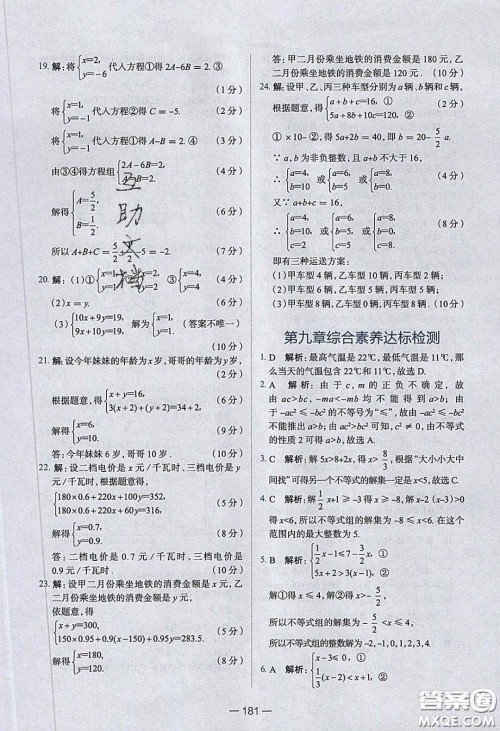 19. 解:将{x=2, y=-6 代入方程①得 2A-6B=2. ③
(1分)
将{x=1, y=-1 代入方程②得 C=-5. (2分)
将{x=1, y=-1 代入方程①得 A-B=2. ④ (3分)
由③④得方程组{2A-6B=2, A-B=2. (4分)
解得{A=5/2, B=1/2. (6分)
所以 A+B+C=5/2+1/2-5=-2. (7分)
20. 解:(1)① ② ③{x=4, y=4
(2)x=y.
(3){10x+9y=19, 9x+10y=19. 解为{x=1, y=1. (答案不唯一)
21. 解:设今年妹妹的年龄为x岁,哥哥的年龄为y岁.
(2分)
根据题意,得{x+y=16, 3(x+2)+(y+2)=34+2,
解得{x=6, y=10. (8分)
答:今年妹妹 6 岁,哥哥 10 岁. (9分)
22. 解:设二档电价是 x 元/千瓦时、三档电价是 y 元/千瓦时.
根据题意,得
{180×0.6+220x+100y=352, 180×0.6+220x+60y=316, (5分)
解得{x=0.7, y=0.9. (8分)
答:二档电价是 0.7 元/千瓦时、三档电价是 0.9 元/千瓦时. (9分)
23. 解:设甲二月份乘坐地铁的消费金额是 x 元,乙二月份乘坐地铁的消费金额是 y 元,
依题意,得
{x+y=300, 150+0.95+0.9(x-150)+0.95y=283.5. (5分)
解得{x=180, y=120. (9分)
答:甲二月份乘坐地铁的消费金额是 180 元,乙二月份乘坐地铁的消费金额是 120 元. (10分)
24. 解:设甲、乙、丙三种车型分别为 a 辆、b 辆和 c 辆,
根据题意,得{a+b+c=16, ① 5a+8b+10c=120, ② (4分)
①×10-②,得 5a+2b=40,即 b=20-5/2a.
∵a,b 为非负整数,且 a+b 不大于 16,
∴{a=4, b=10 或{a=6, b=5 或{a=8, b=0. (8分)
又∵a+b+c=16,
∴{a=4, b=10, c=2 或{a=6, b=5, c=5 或{a=8, b=0, c=8.
即有三种运送方案:
(1)甲车型 4 辆,乙车型 10 辆,丙车型 2 辆;
(2)甲车型 6 辆,乙车型 5 辆,丙车型 5 辆;
(3)甲车型 8 辆,乙车型 0 辆,丙车型 8 辆. (10分)
第九章综合素养达标检测
1. D 解析:最高气温是 22℃,最低气温是 11℃,那么当天的气温已包含 22℃和 11℃,故选 D.
2. A 解析:由于 c,m 的正负不确定,故由 ac>bc,-ma<-mb 均不能得出 a>b;由于 -ac²≤-bc² 的不等号为“≤”,故由 -ac²≤-bc² 不能推出 a>b;由 ac²>bc² 可知 c²≠0,由不等式的性质 2 可得 a>b. 故选 A.
3. C 解析:解 5x>8+2x,得 x>8/3,根据“大小小大中间找”可得另一个不等式的解集一定是 x<5,故选 C.
4. C 解析:解1/2x+1≥-3 得 x≥-8,解 x-2(x-3)>0 得 x<6,所以不等式组的解集为 -8≤x<6. 在这个范围内的最大整数为 5.
5. B 解析:{1/2x-1≤7-3/2x, ① 5x-2>3(x-1). ②
解①得 x≤4,解②得 x>-5/2,
所以不等式组的解集为 -5/2<x≤4,
所以不等式组的整数解为 -2,-1,0,1,2,3,4.
6. A 解析:{x-3≤0, ① 1/3(x-2)<x+1, ②
— 181 —
互
助
文
档
答案圈
MXQE.COM